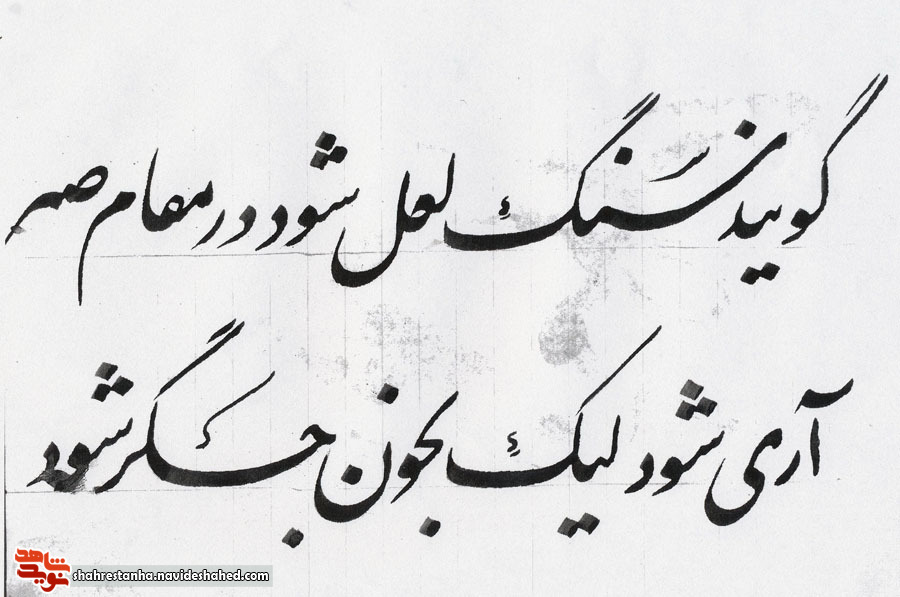 گویند سنگ لعل شود در مقام صبر
آری شود لیک بخون جگر شود
شاهد
نوید
shahrestanha.navideshahed.com